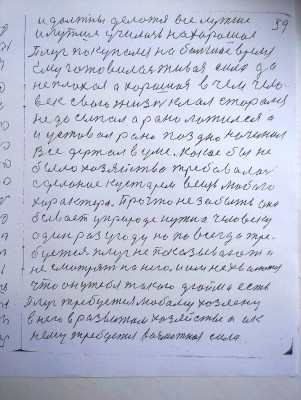 и должны делотя все лутше 59
и лутше училиль на хорошое
Плуг покупали на болшее время
Ему готовилась живая сила да
не плохая а хорошая в чем чело-
век свою жизн клал старался
недосыпал а рано ложился а
и уставал рано поздно начинал
Все держал в уме. Какое бы не
было хозяйство требовалас
сделоное кустарем вещ любого
характера. Про што не забыть она
бывает у природе нужна человеку
один раз у году но повсегда тре-
буется. плуг не показывают и
не смотрят на него, и им не хвалют
что он у тебя такого дюйма есть
Плуг требуется любому хозяену
в него в развитом хозяйстве а ик
нему требуется бычмотная сила